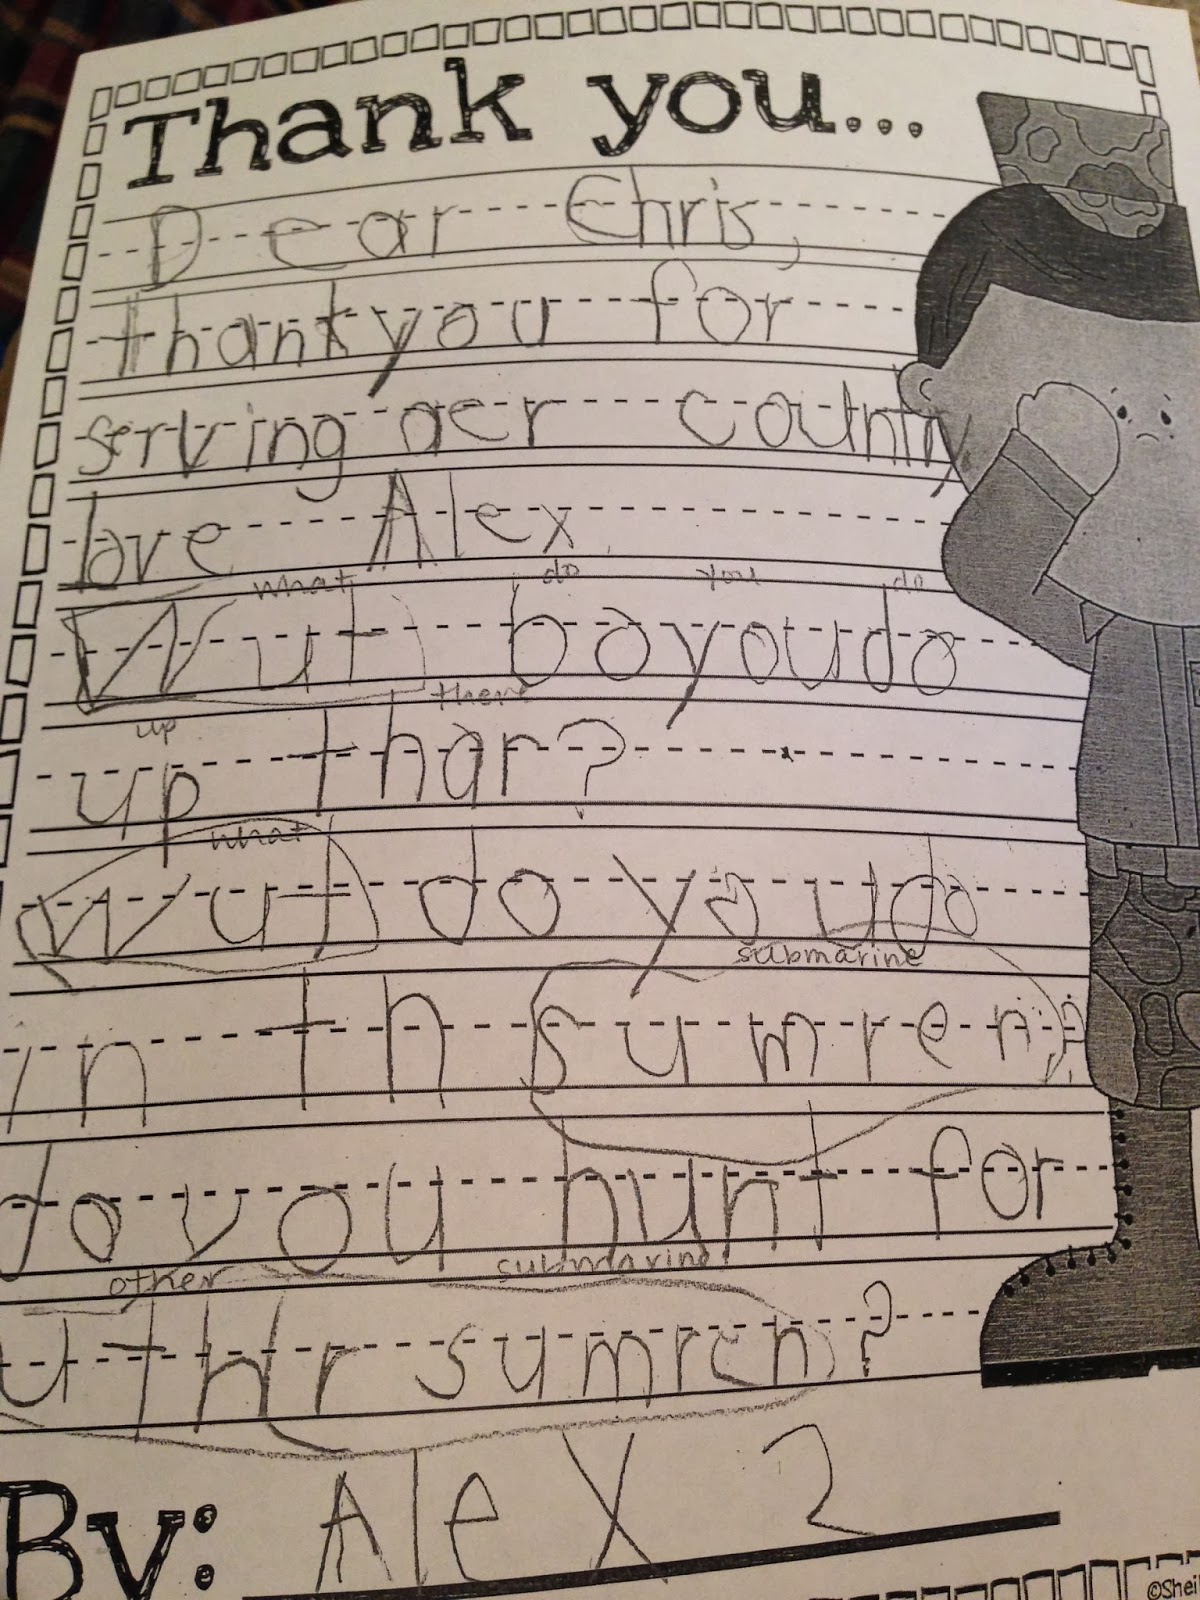 Thank you...
Dear Chris,
thankyou for
serving aer country,
love Alex
what do you do
Wut boyoudo
up there
up thar?
what
Wut do yo udo
submarine
in th sumren?
do you hunt for
other submarine
uthr sumren?
By: Alex 2
©Shei